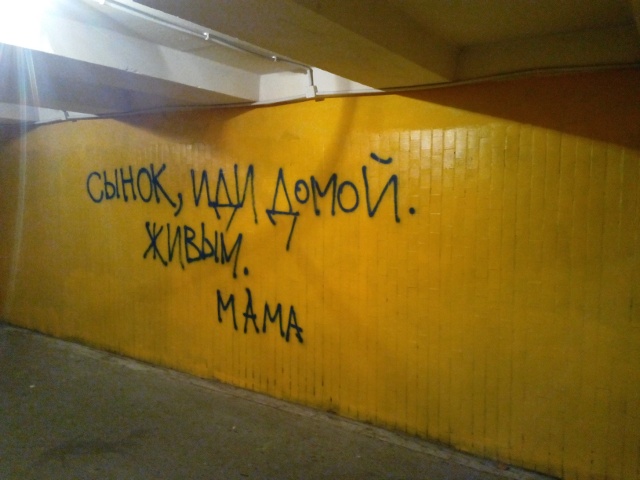 сынок, иди домой.
живым.
мама